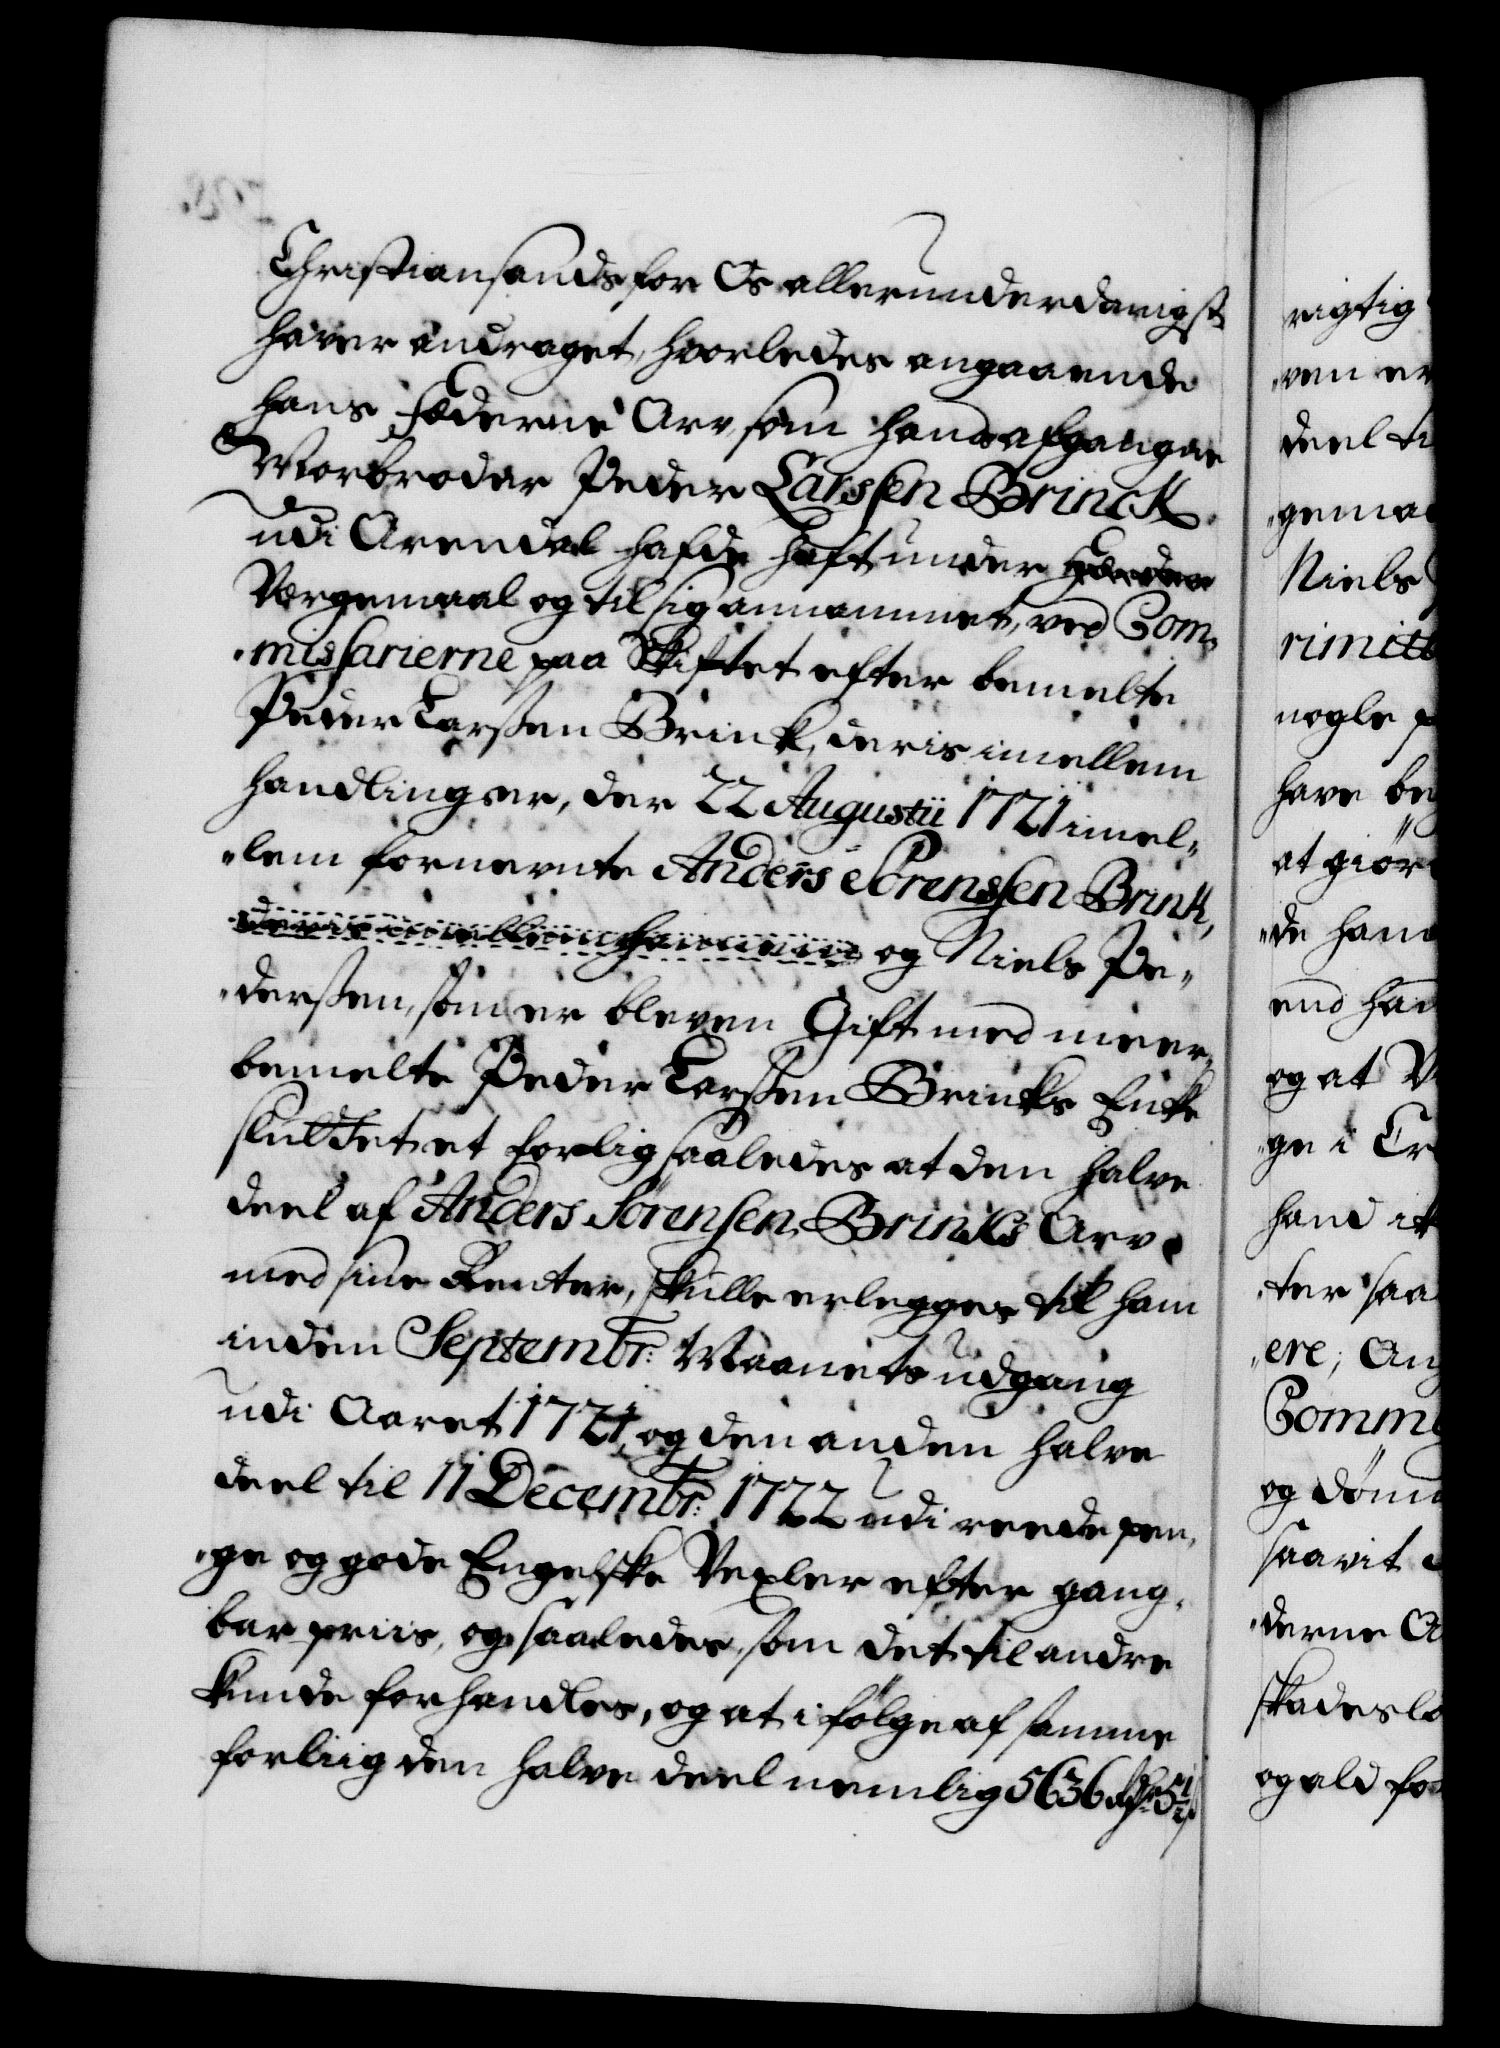 Christiansands for Os allerunderdanigst
haver andraget, hvorledes angaaende
hans Fæderne Arv, som hands afgangne
Morbroder Peder Larssen Brinck
udi Arendal hafde haft under
Værgemaal og til sig annammet, ved Com-
missarierne paa Skiftet efter bemelte
Peder Larssen Brink, deris imellem
handlinger, der 22 Augustii 1721 imel-
lem fornevnte Anders Sørenssen Brink,
og Niels Pe-
dersen, som er bleven Gift med meer-
bemelte Peder Larssen Brinks Enke
sluttet et forlig saaledes at den halve
deel af Anders Sørensen Brincks Arv
med sine Renter, skulle erlegges til ham
inden Septembr: Maanets udgang
udi Aaret 1721, og den anden halve
deel til 11 Decembr: 1722 udi reede pen-
ge og gode Engelske Vexler efter gang-
bar priis, og saaledes, som det til andre
kunde forhandles, og at i følge af samme
forliig den halve deel nemlig 5636
rigtig
ven er
deel ti
gemae
Niels
rimitt
nogle p
have be
at giør
de hand
end han
og at V
ge i Cr
hand itt
ter saa
ere; An
Comm
og dømm
saavit
derne A
skadeslø
og ald fo